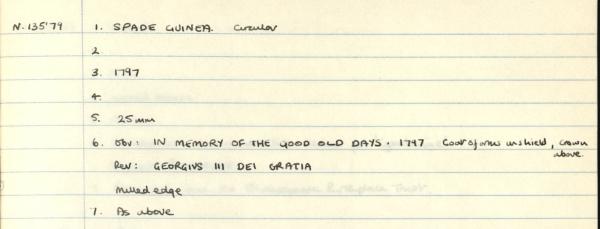 N.135'79 1. SPADE GUINEA. Circular
2
3. 1797
4.
5. 25mm
6. Obv: IN MEMORY OF THE GOOD OLD DAYS. 1797 Coat of arms in shield, crown above.
Rev: GEORGIVS III DEI GRATIA
Milled edge
7. As above